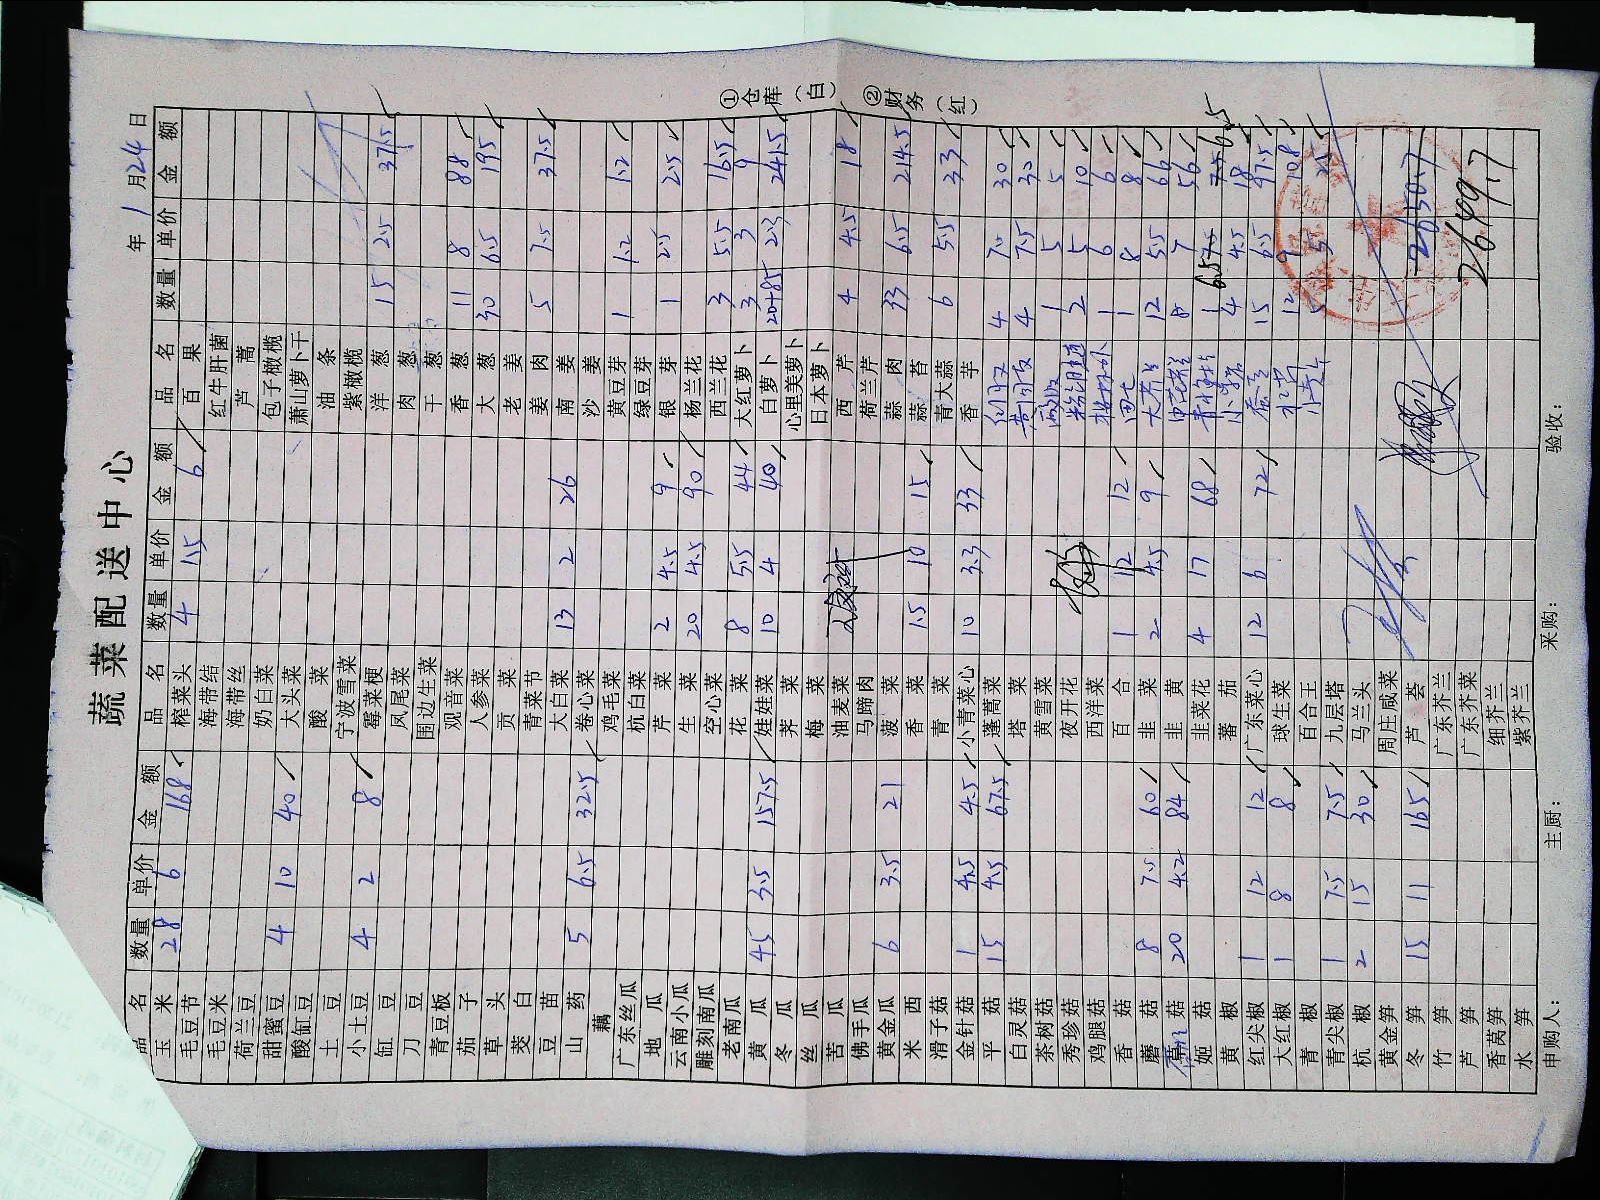 蔬菜配送中心
年 1 月 24 日
品名 数量 单价 金额 品名 数量 单价 金额 品名 数量 单价 金额
玉米 28 6 168 榨菜头 4 1.5 6 百果
毛豆节 海带结 红牛肝菌
毛豆米 海带丝 芦蒿
荷兰豆 奶白菜 包子橄榄
甜蜜豆 4 10 40 大头菜 萧山萝卜干
酸缸豆 酸菜 油条
土豆 宁波雪菜 紫橄榄
小土豆 4 2 8 霉菜梗 洋葱 15 2.5 37.5
缸豆 凤尾菜 肉葱
刀豆 围边生菜 干葱
青豆板 观音菜 香葱 11 8 88
茄子 人参菜 大葱 30 6.5 195
草头 贡菜 老姜
茭白 青菜节 姜肉 5 7.5 37.5
豆苗 大白菜 13 2 26 南姜
山药 5 6.5 32.5 卷心菜 沙姜
藕 鸡毛菜 黄豆芽 1 1.2 1.2
广东丝瓜 杭白菜 绿豆芽
地瓜 芹菜 2 4.5 9 银芽 1 2.5 2.5
云南小瓜 生菜 20 4.5 90 杨兰花
雕刻南瓜 空心菜 西兰花 3 5.5 16.5
老南瓜 花菜 8 5.5 44 大红萝卜 3 3 9
黄瓜 45 3.5 157.5 娃娃菜 10 4 40 白萝卜 20+85 2.3 241.5
冬瓜 荠菜 心里美萝卜
丝瓜 梅菜 日本萝卜
苦瓜 油麦菜 西芹 4 4.5 18
佛手瓜 马蹄肉 荷兰芹
黄金瓜 6 3.5 21 菠菜 蒜肉 33 6.5 214.5
米西 香菜 1.5 10 15 蒜苔
滑子菇 青菜 青大蒜 6 5.5 33
金针菇 1 4.5 4.5 小青菜心 10 3.3 33 香芋
平菇 15 4.5 67.5 蓬蒿菜 4 7.5 30
白灵菇 塔菜 4 7.5 30
茶树菇 黄雪菜 1 5 5
秀珍菇 夜开花 2 5 10
鸡腿菇 西洋菜 1 6 6
香菇 百合 1 12 12 1 8 8
蘑菇 8 7.5 60 韭菜 2 4.5 9 12 5.5 66
菇 20 4.2 84 韭黄 8 7 56
姬菇 韭菜花 4 17 68 1 6.5
黄椒 蕃茄 4 4.5 18
红尖椒 1 12 12 广东菜心 12 6 72 15 6.5 97.5
大红椒 1 8 8 球生菜 12 9 108
青椒 百合王 5
青尖椒 1 7.5 7.5 九层塔
杭椒 2 15 30 马兰头
黄金笋 周庄咸菜
冬笋 15 11 165 芦荟 2650.7
竹笋 广东芥兰
芦笋 广东芥菜 2649.7
香莴笋 细芥兰
水笋 紫芥兰
申购人： 主厨： 采购： 验收：
①仓库（白） ②财务（红）